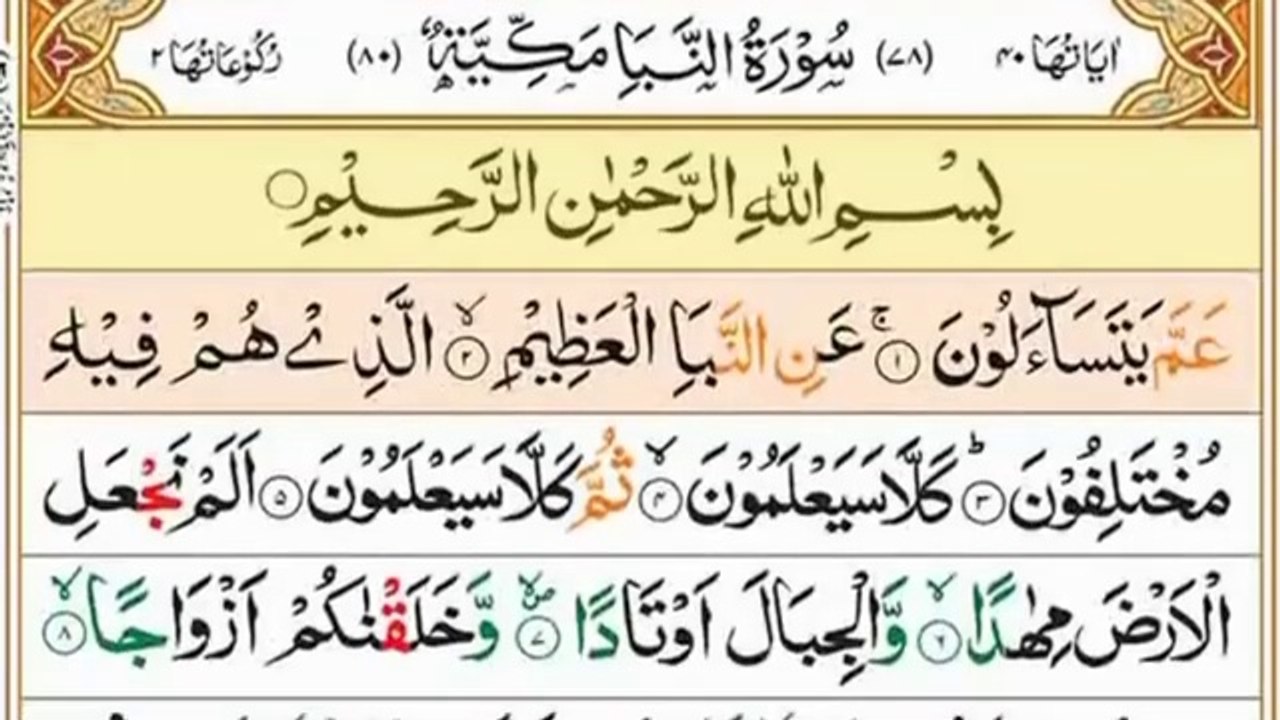 اٰيَاتُهَا ٤٠ (٧٨) سُوْرَةُ النَّبَاِ مَكِّيَّةٌ (٨٠) رُكُوْعَاتُهَا ٢
بِسْمِ اللّٰهِ الرَّحْمٰنِ الرَّحِيْمِ ○
عَمَّ يَتَسَآءَلُوْنَ ۚ ﴿١﴾ عَنِ النَّبَاِ الْعَظِيْمِ ۙ ﴿٢﴾ الَّذِيْ هُمْ فِيْهِ
مُخْتَلِفُوْنَ ؕ ﴿٣﴾ كَلَّا سَيَعْلَمُوْنَ ۙ ﴿٤﴾ ثُمَّ كَلَّا سَيَعْلَمُوْنَ ﴿٥﴾ اَلَمْ نَجْعَلِ
الْاَرْضَ مِهٰدًا ۙ ﴿٦﴾ وَّالْجِبَالَ اَوْتَادًا ۪ۙ ﴿٧﴾ وَّخَلَقْنٰكُمْ اَزْوَاجًا ۙ ﴿٨﴾